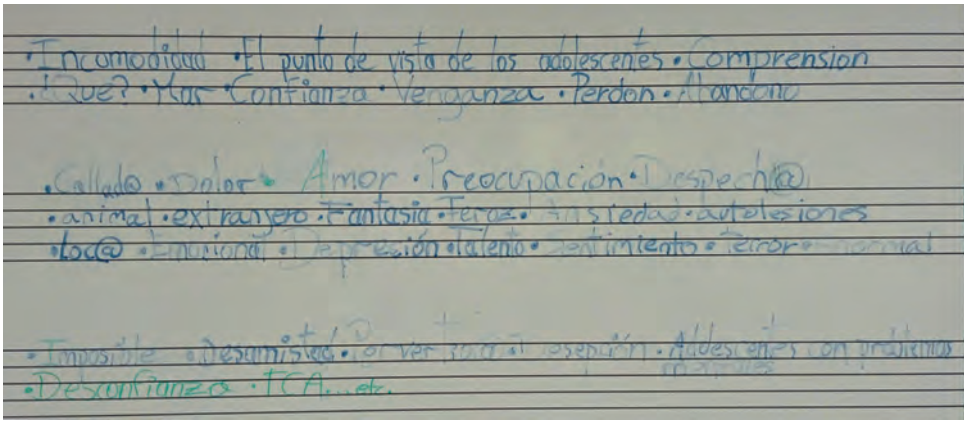 ·Incomodidad ·El punto de vista de los adolescentes ·Comprension
·¿Que? ·Mar ·Confianza ·Venganza ·Perdon ·Abandono
·Callad@ ·Dolor · Amor ·Preocupación ·Despech@
·animal ·extranjero ·Fantasia ·Feroz · Ansiedad ·autolesiones
·loc@ ·Emocional ·Depresión ·Talento · Sentimiento ·Terror · normal
·Imposible ·Desamistad · ·Adolescentes con problemas
mentales
·Desconfianza ·TCA...etc.